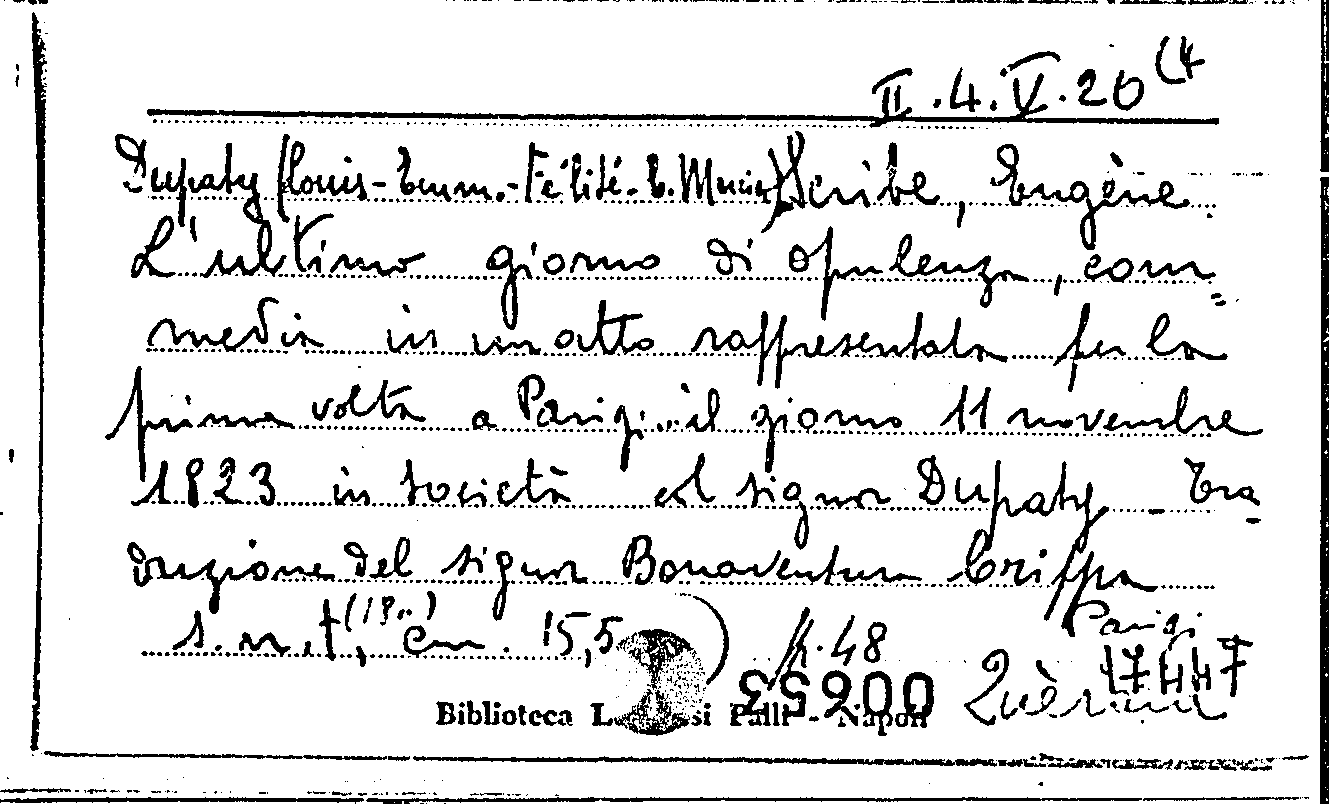 II.4.V.20(4
Dupaty (Louis-Emm.-Félité-C. Mercier) Scribe, Eugène
L'ultimo giorno di opulenza, com=
media in un atto rappresentata per la
prima volta a Parigi il giorno 11 novembre
1823 in società col signor Dupaty - Tra-
duzione del signor Bonaventura Crippa
s.n.t, (18..) cm. 15,5 p. 48 Parigi
17447
006553 Quèrard
Biblioteca Palli - Napoli